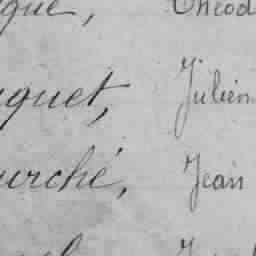 que, Théod
quet, Julien
urché, Jean